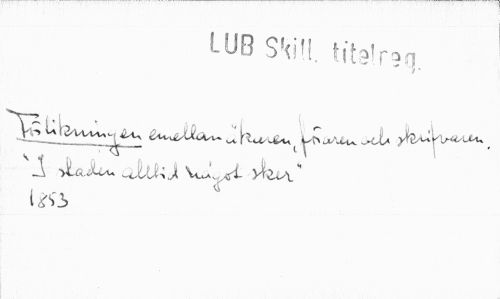 LUB Skill. titelreg.
Förlikningen emellan åkaren, föraren och skrifvaren.
"I staden alltid något sker"
1853